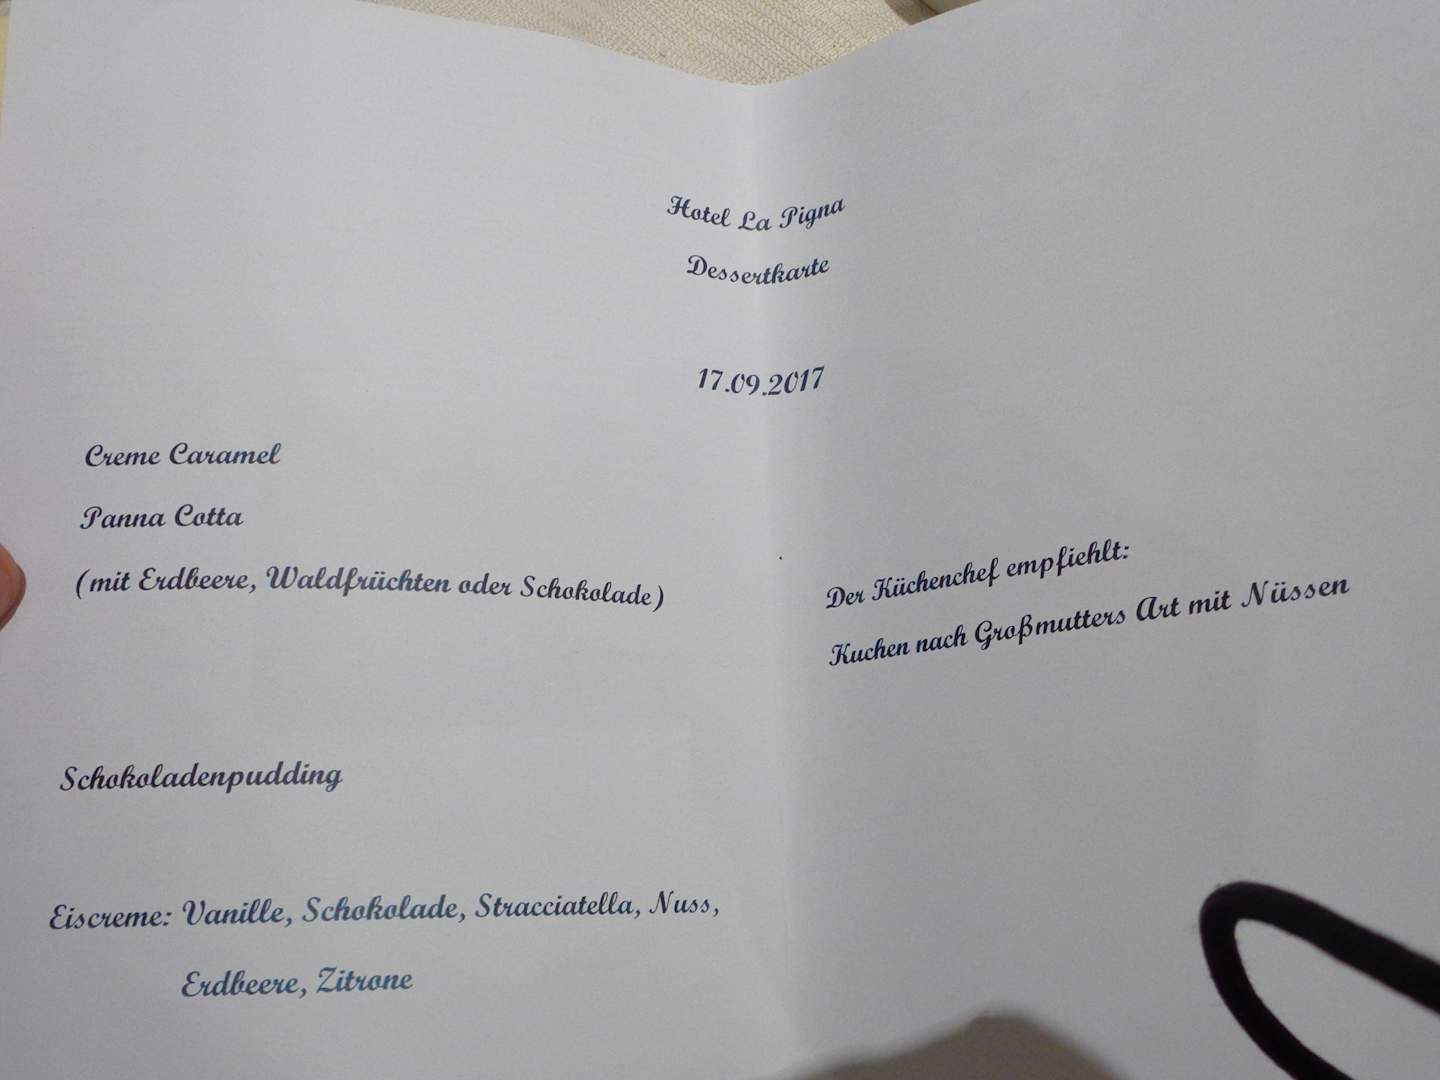 Hotel La Pigna
Dessertkarte
17.09.2017
Creme Caramel
Panna Cotta
(mit Erdbeere, Waldfrüchten oder Schokolade)
Schokoladenpudding
Eiscreme: Vanille, Schokolade, Stracciatella, Nuss,
Erdbeere, Zitrone
Der Küchenchef empfiehlt:
Kuchen nach Großmutters Art mit Nüssen